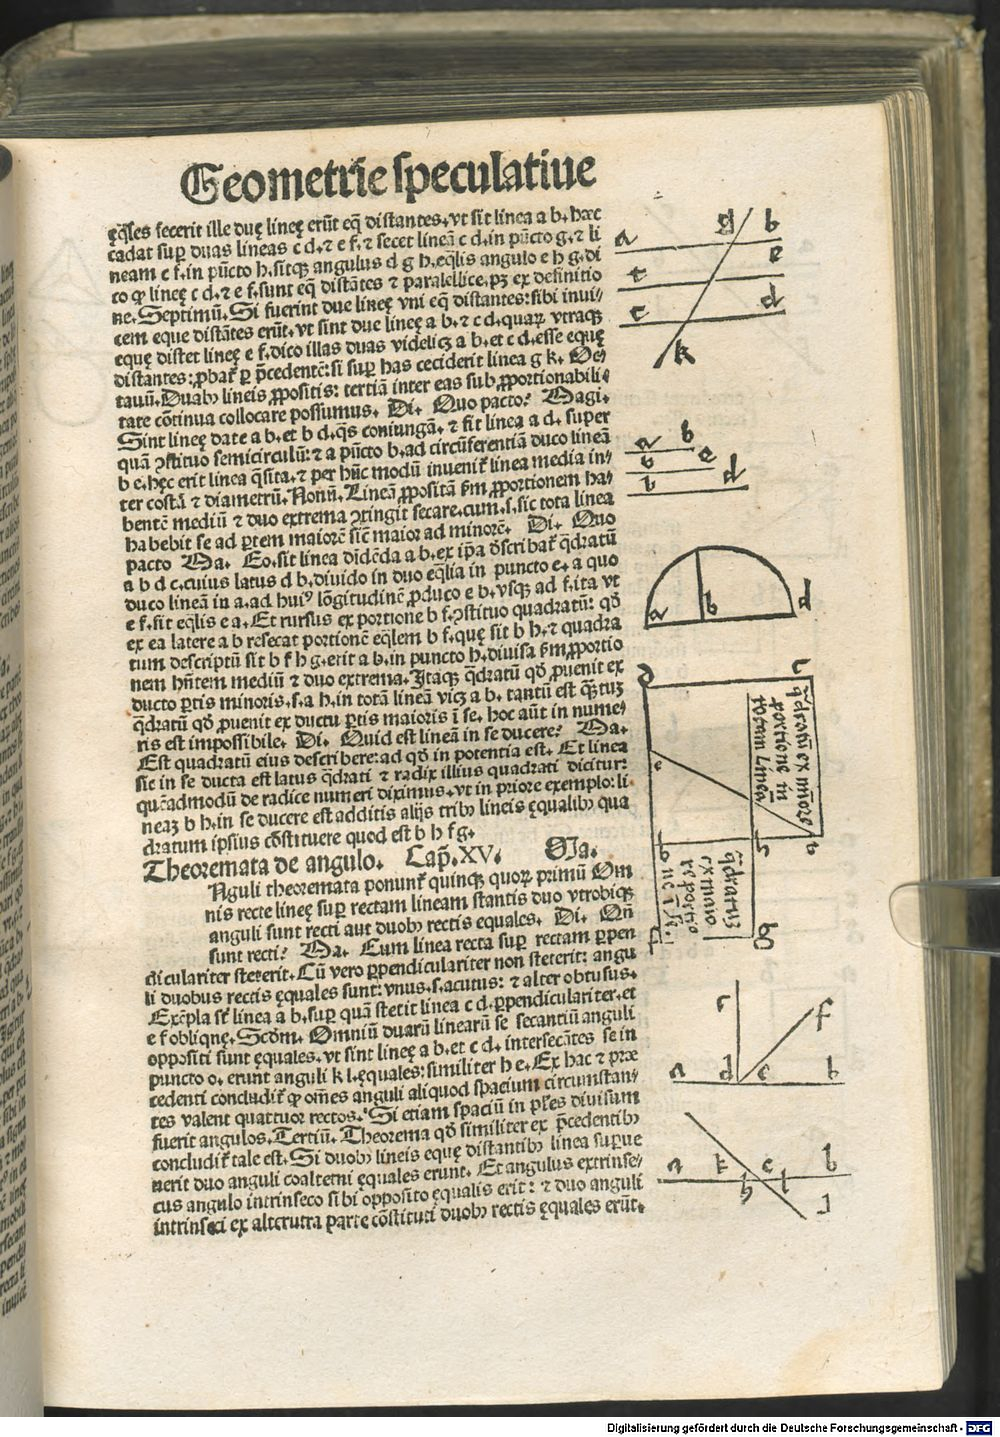 Geometrie speculatiue
ęq̃les fecerit ille duę lineę erũt eq̃ distantes. vt sit linea a b. hæc
cadat suꝑ duas lineas c d. ⁊ e f. ⁊ secet lineã c d. in pũcto g. ⁊ li
neam e f. in pũcto h. sitqꝫ angulus d g h. eq̃lis angulo e h g. di
co ꝙ lineę c d. ⁊ e f. sunt eq̃ distãtes ⁊ paralellice. pꝫ ex definitio
ne. Septimũ. Si fuerint due lineę vni eq̃ distantes: sibi inui/
cem eque distãtes erũt. vt sint due lineę a b. ⁊ c d. quaꝝ vtraqꝫ
equę distet lineę e f. dico illas duas videlicꝫ a b. et c d. esse equę
distantes: ꝓbat᷑ ꝑ p̃cedentẽ: si suꝑ has ceciderit linea g k. Oc/
tauũ. Duabꝰ lineis ꝓpositis: tertiã inter eas sub ꝓportionabili/
tate cõtinua collocare possumus. Di. Quo pacto? Magi.
Sint lineę date a b. et b d. q̃s coniungã. ⁊ fit linea a d. super
quã ꝯstituo semicirculũ: ⁊ a pũcto b. ad circũferentiã duco lineã
b e. hęc erit linea q̃sita. ⁊ per hũc modũ inuenit᷑ linea media in/
ter costã ⁊ diametrũ. Nonũ. Lineã ꝓpositã ẜm ꝓportionem ha/
bentẽ mediũ ⁊ duo extrema ꝯtingit secare. cum. s. sic tota linea
habebit se ad ꝑtem maiorẽ sicũ maior ad minorẽ. Di. Quo
pacto Ma. Eo. sit linea diđẽda a b. ex ip̃a đscribat᷑ q̃dratũ
a b d c. cuius latus d b. diuido in duo eq̃lia in puncto e. a quo
duco lineã in a. ad huiꝰ lõgitudinẽ ꝓduco e b. vsqꝫ ad f. ita vt
e f. sit eq̃lis e a. Et rursus ex portione b f. ꝯstituo quadratũ: qđ
ex ea latere a b resecat portionẽ eq̃lem b f. quę sit b h. ⁊ quadra
tum descriptũ sit b f h g. erit a b. in puncto h. diuisa ẜm ꝓportio
nem hñtem mediũ ⁊ duo extrema. Itaqꝫ q̃dratũ qđ ꝓuenit ex
ducto ꝑtis minoris. s. a h. in totã lineã vicꝫ a b. tantũ est q̃ꝫtuꝫ
q̃dratũ qđ ꝓuenit ex ductu ꝑtis maioris ĩ se. hoc aũt in nume/
ris est impossibile. Di. Quid est lineã in se ducere? Ma.
Est quadratũ eius describere: ad qđ in potentia est. Et linea
sic in se ducta est latus q̃drati ⁊ radix illius quadrati dicitur:
quẽadmodũ de radice numeri diximus. vt in priore exemplo: li
neaꝫ b h. in se ducere est additis alijs tribꝰ lineis ęqualibꝰ qua
dratum ipsius cõstituere quod est b h f g.
Theoremata de angulo. Cap̃. XV. Ma.
Nguli theoremata ponunt᷑ quinqꝫ quoꝝ primũ Om
nis recte lineę suꝑ rectam lineam stantis duo vtrobiqꝫ
anguli sunt recti aut duobꝰ rectis equales. Di. Qñ
sunt recti? Ma. Cum linea recta suꝑ rectam ꝑpen
diculariter steterit. Cũ vero ꝑpendiculariter non steterit: angu
li duobus rectis ęquales sunt: vnus. s. acutus: ⁊ alter obtusus.
Exẽpla sũt linea a b. suꝑ quã stetit linea c d. ꝑpendiculariter. et
e f obliqnę. Scđm. Omniũ duarũ linearũ se secantiũ anguli
oppositi sunt ęquales. vt sint lineę a b. et c d. intersecãtes se in
puncto o. erunt anguli k l. ęquales: similiter h e. Ex hac ⁊ præ
cedenti concludit᷑ ꝙ om̃es anguli aliquod spacium circumstan/
tes valent quattuor rectos. Si etiam spaciũ in pl̃es diuisum
fuerit angulos. Tertiũ. Theorema qđ similiter ex p̃cedentibꝰ
concludit᷑ tale est. Si duobꝰ lineis equę distantibꝰ linea suꝑue
nerit duo anguli coalterni ęquales erunt. Et angulus extrinse/
cus angulo intrinseco sibi opposito ęqualis erit: ⁊ duo anguli
intrinseci ex altcrutra parte cõstituti duobꝰ rectis ęquales erũt.
g b
a
e
c
d
k
a b
b e
b d
a b d
c
q̃dratũ ex m̃ore
portiõe in
totam lineã
e
b h a
q̃dratuꝫ
ex maio
re portio
ne ĩ se.
f g
c f
a d e b
a k e b
h l
Digitalisierung gefördert durch die Deutsche Forschungsgemeinschaft - DFG